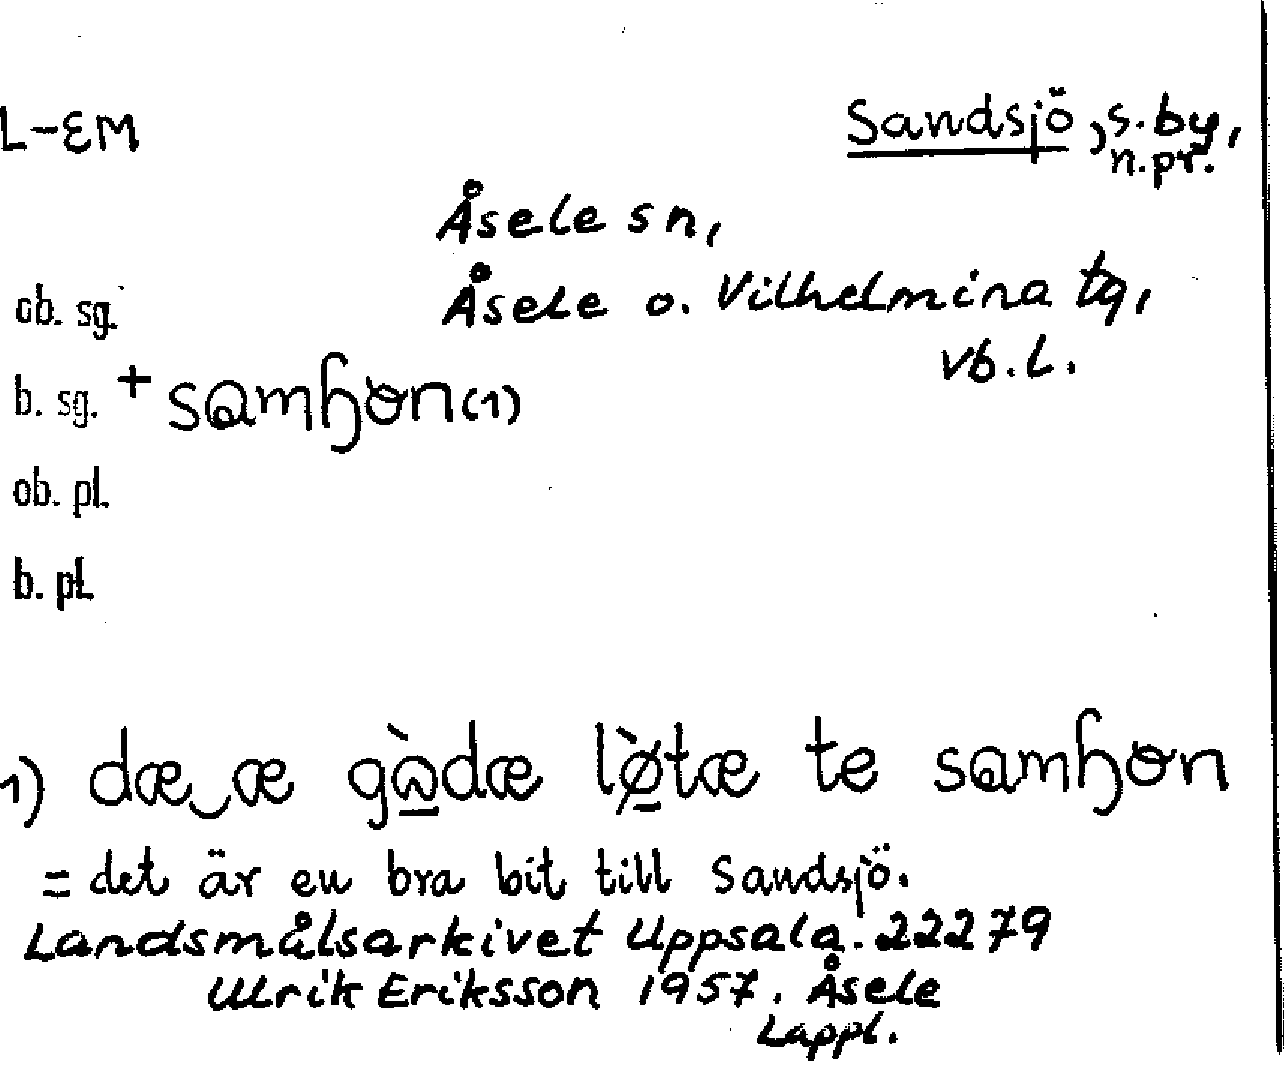 L-EM
Sandsjö, s. by,
n.pr.
Åsele sn,
ob. sg.
Åsele o. Vilhelmina tg,
Vb.l.
b. sg. + samɧɵn (1)
ob. pl.
b. pl.
1) dæ‿æ gòdæ lø̀tæ te samɧɵn
= det är en bra bit till Sandsjö.
Landsmålsarkivet Uppsala. 22279
Ulrik Eriksson 1957. Åsele
Lappl.